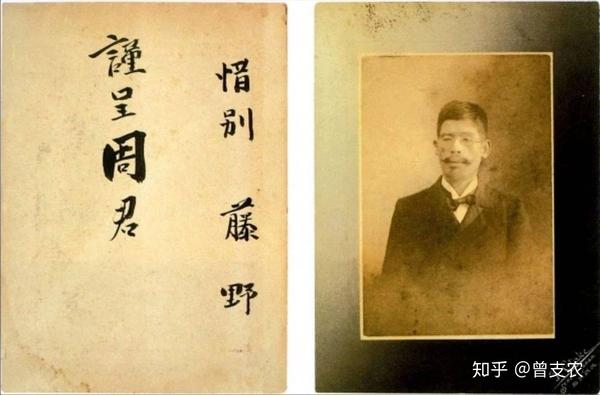 惜別 藤野
謹呈周君
知乎 @曾支农